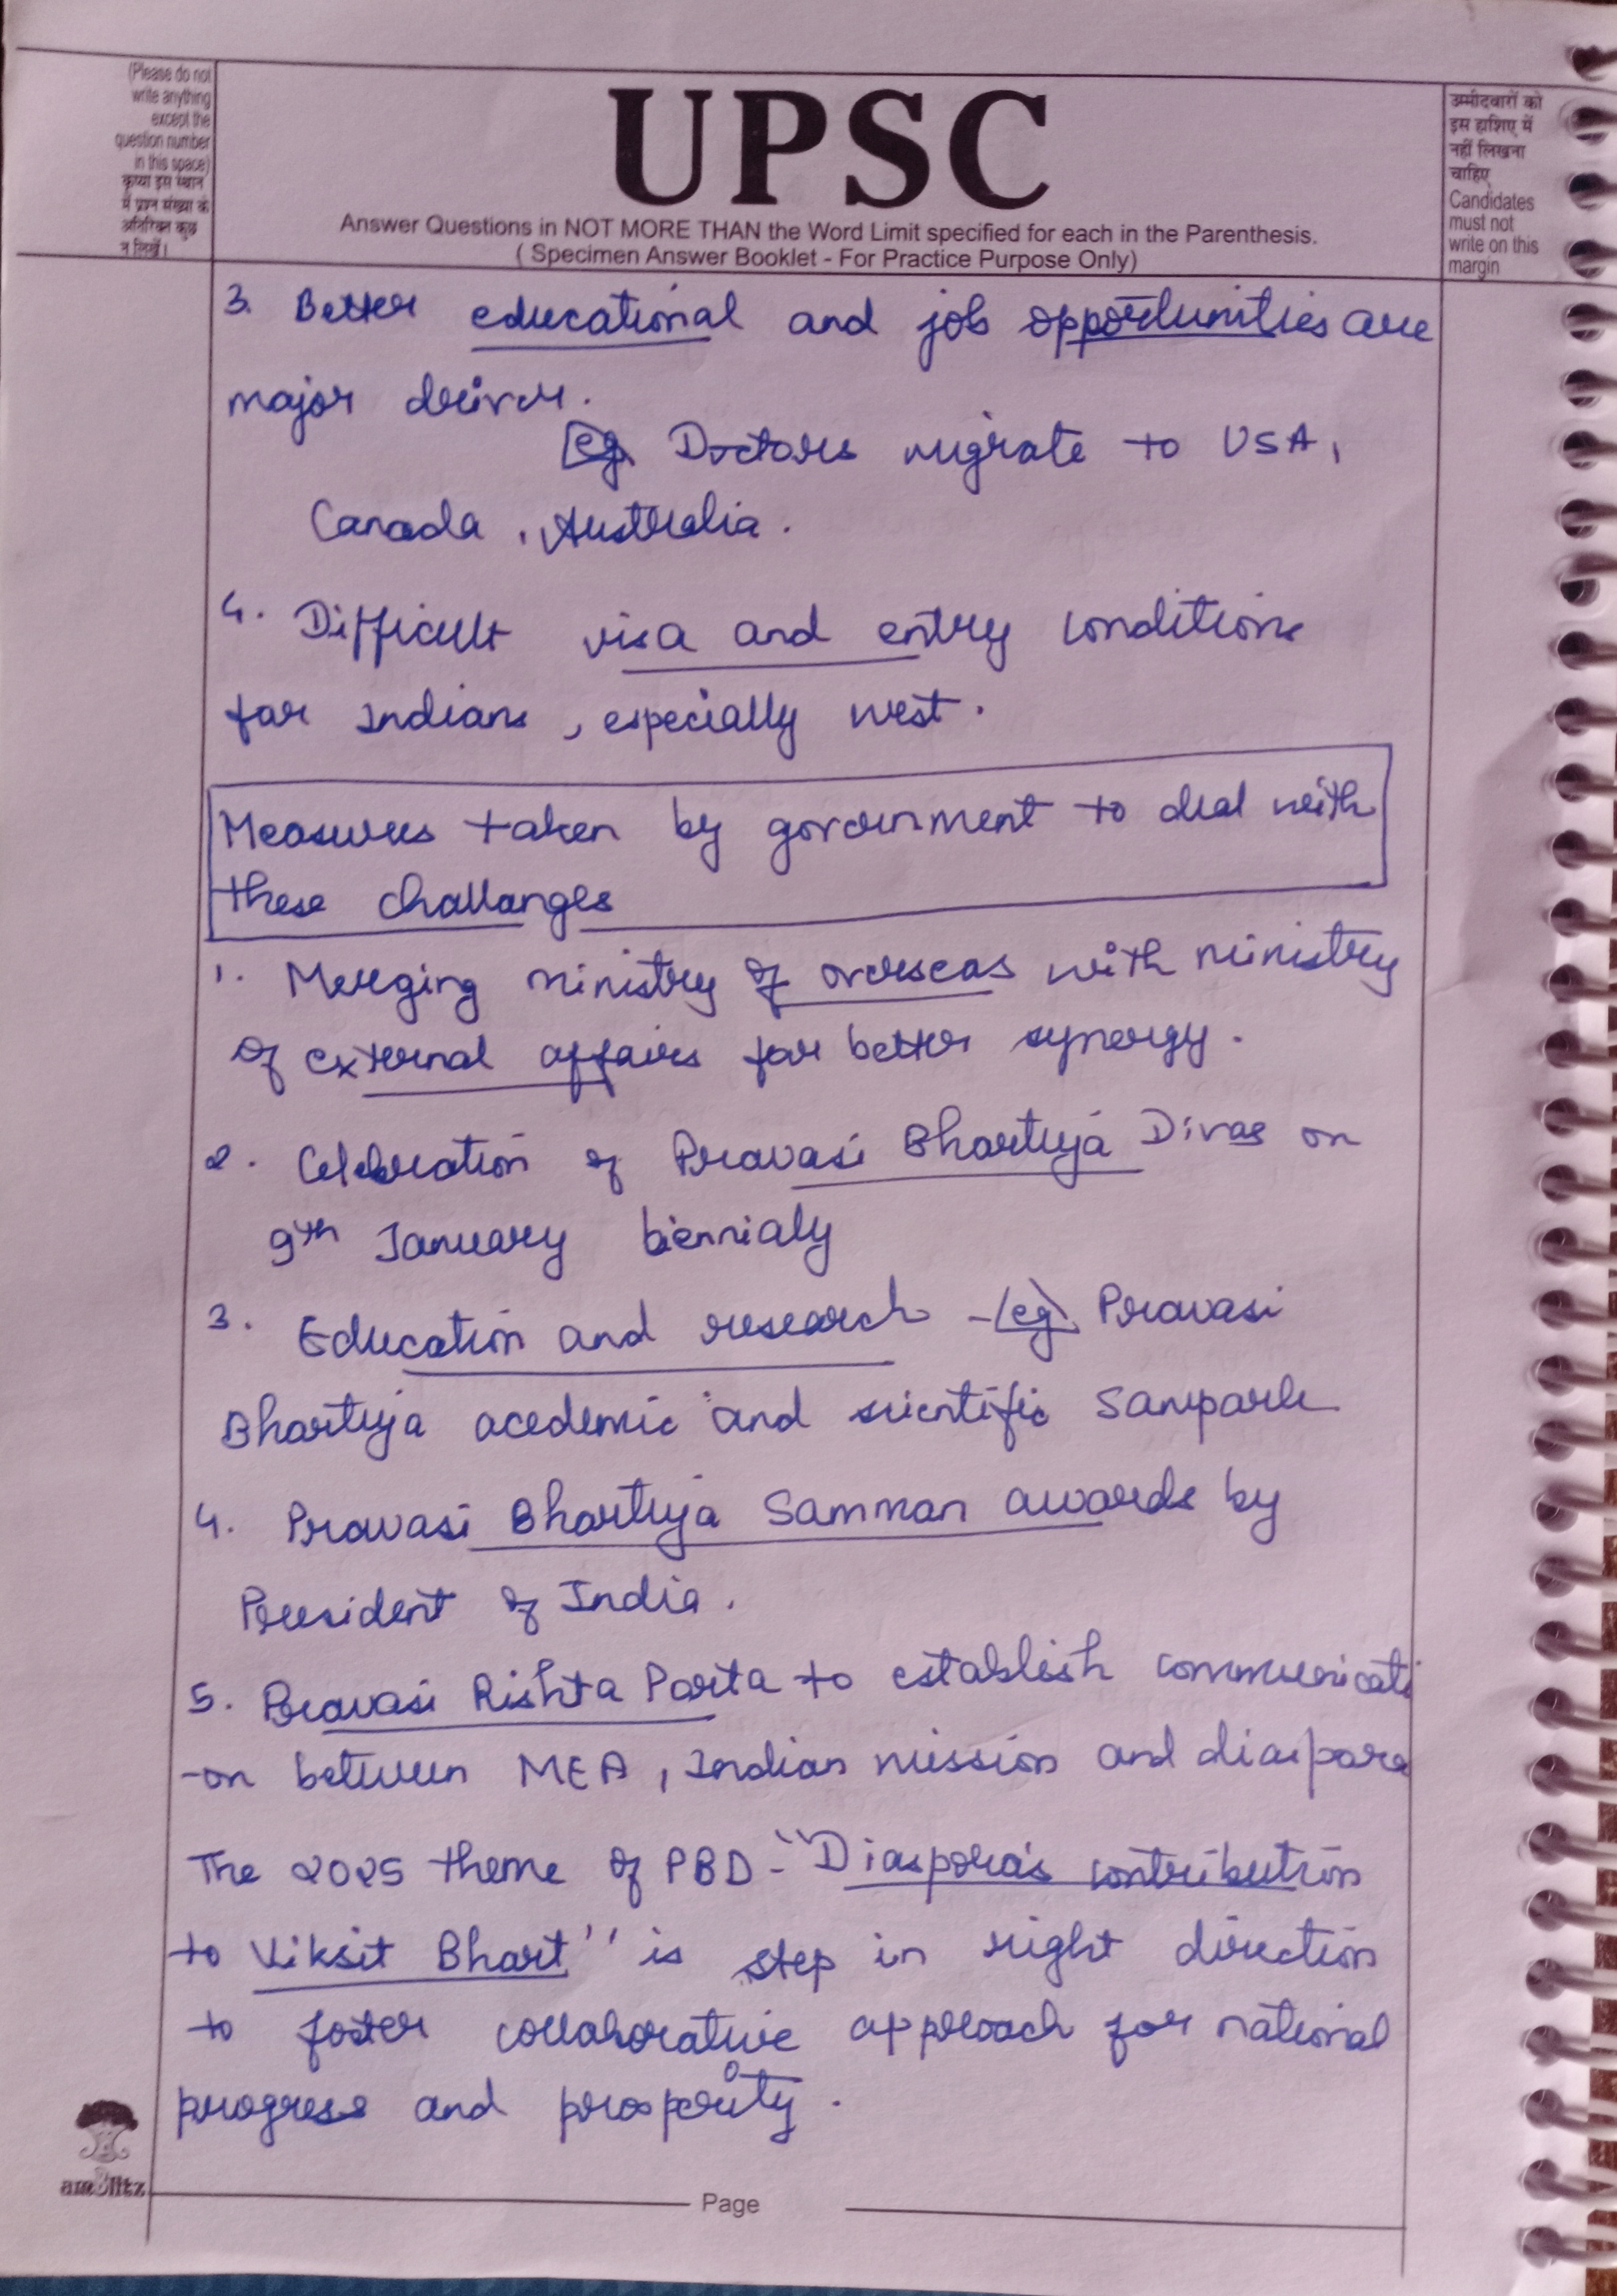 (Please do not
write anything
except the
question number
in this space)
कृप्या इस स्थान
में प्रश्न संख्या के
अतिरिक्त कुछ
न लिखें।
UPSC
Answer Questions in NOT MORE THAN the Word Limit specified for each in the Parenthesis.
( Specimen Answer Booklet - For Practice Purpose Only)
उम्मीदवारों को
इस हाशिए में
नहीं लिखना
चाहिए
Candidates
must not
write on this
margin
3. Better educational and job opportunities are
major driver.
eg Doctors migrate to USA,
Canada, Australia.
4. Difficult visa and entry conditions
for Indians, especially west.
Measures taken by government to deal with
these challanges
1. Merging ministry of overseas with ministry
of external affairs for better synergy.
2. Celebration of Pravasi Bhartiya Divas on
9th January biennialy
3. Education and research - eg Pravasi
Bhartiya acedemic and scientific Sampark
4. Pravasi Bhartiya Samman awards by
President of India.
5. Pravasi Rishta Porta to establish communicati
-on between MEA, Indian mission and diaspora
The 2025 theme of PBD - "Diaspora's contribution
to Viksit Bhart" is step in right direction
to foster collaborative approach for national
progress and prosperity.
amBlitz
Page